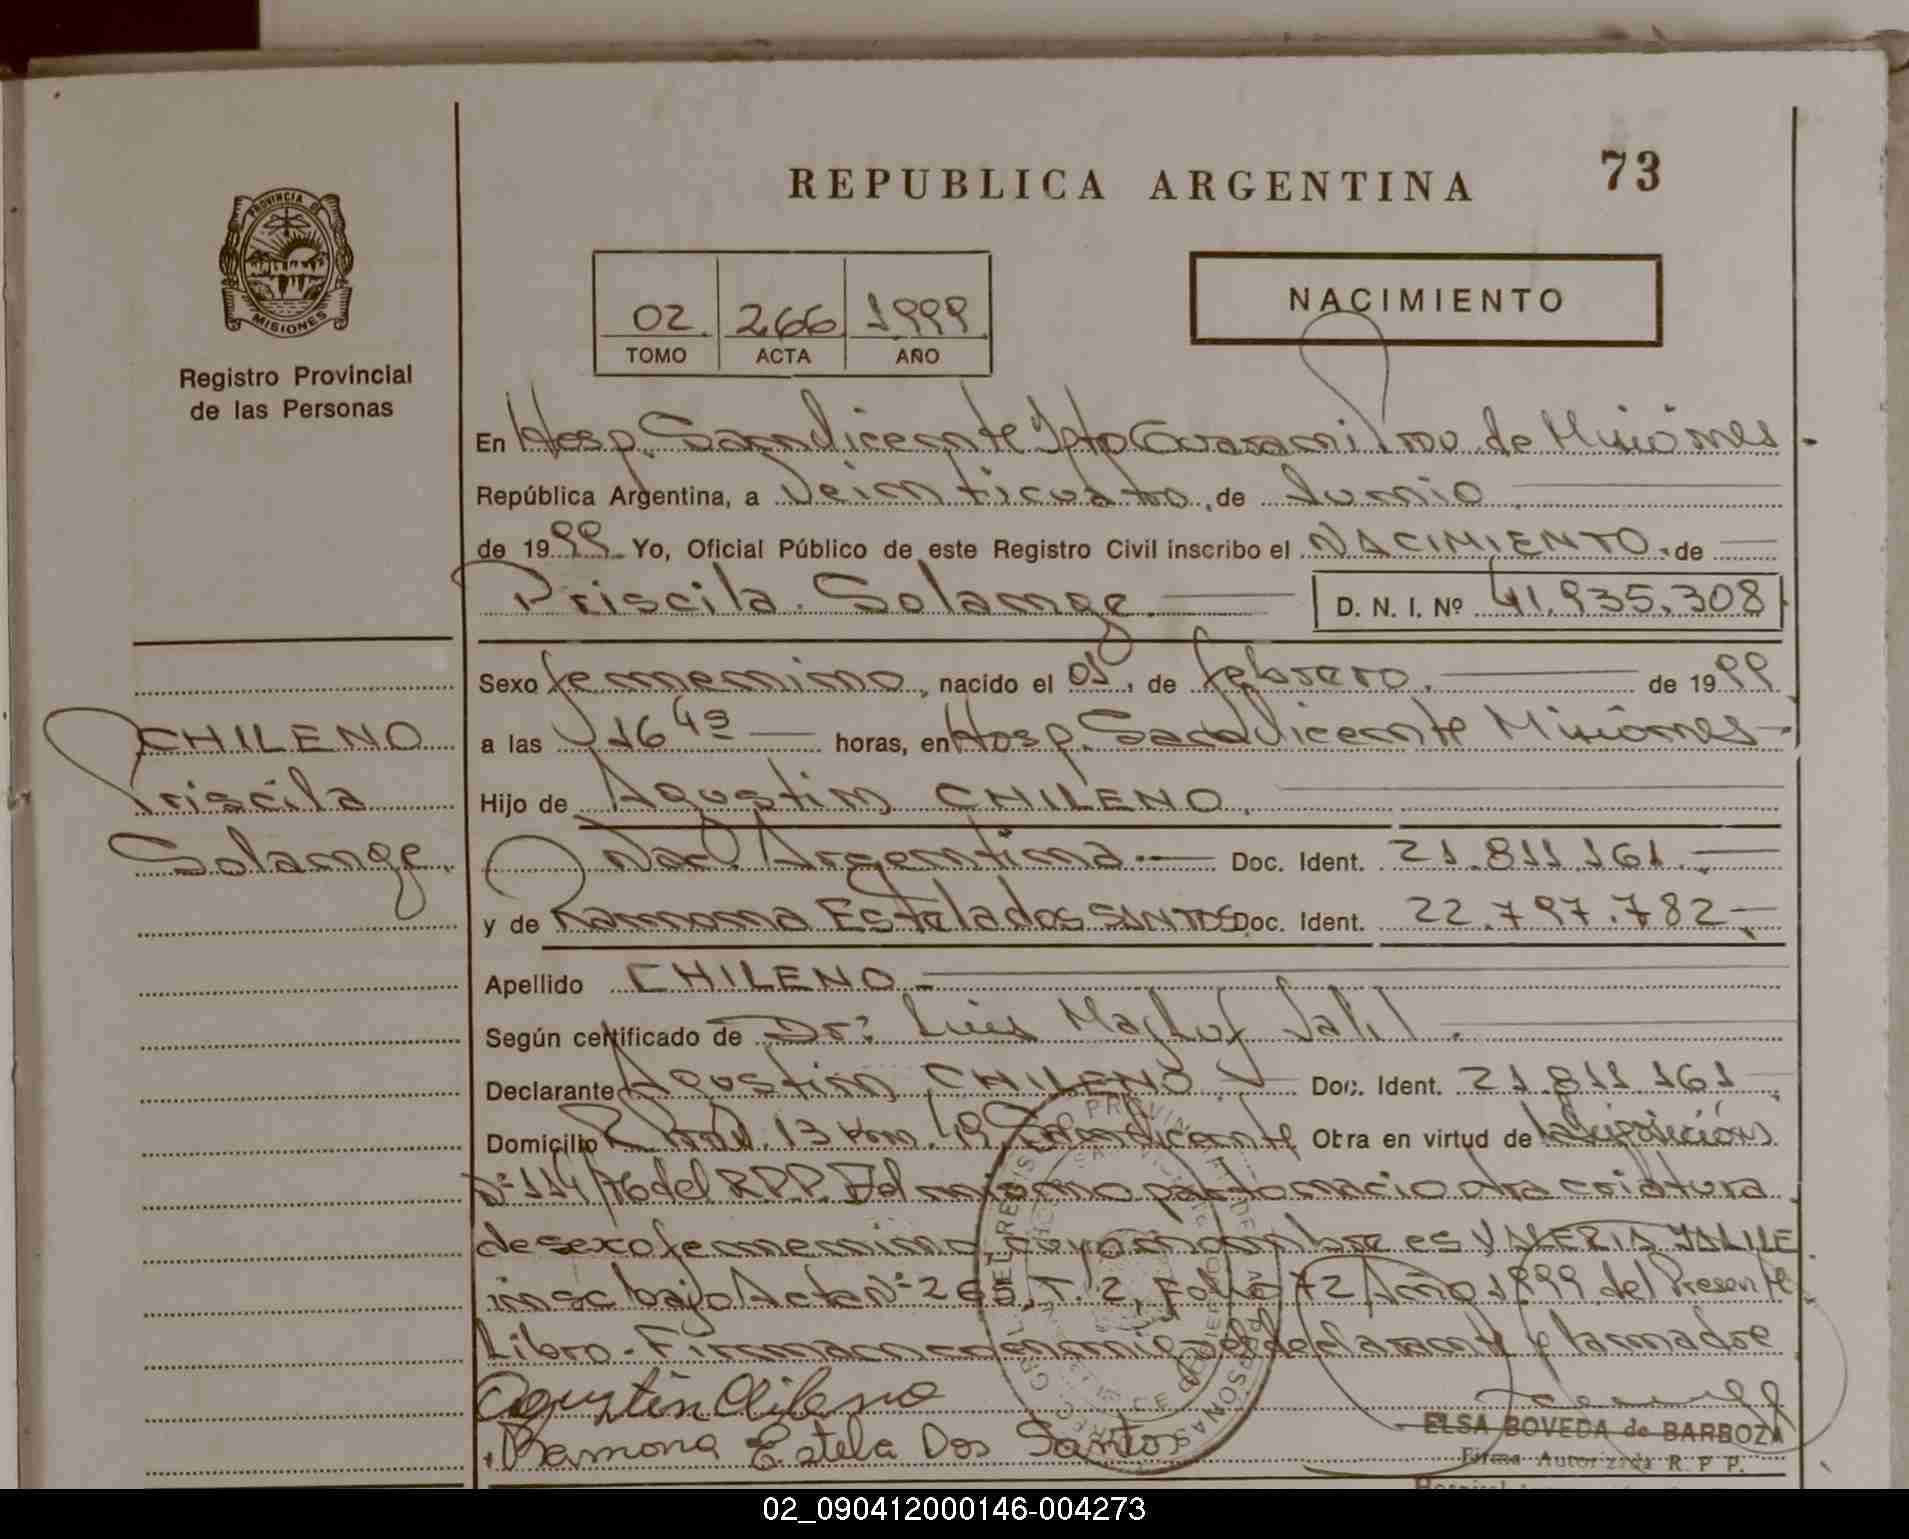 REPUBLICA ARGENTINA
73
PROVINCIA DE
MISIONES
Registro Provincial
de las Personas
02 266 1999
TOMO ACTA AÑO
NACIMIENTO
En Hosp. San Vicente Dpto Guarani Prov. de Misiones.
República Argentina, a Veinticuatro, de Junio
de 1999 Yo, Oficial Público de este Registro Civil inscribo el NACIMIENTO de
Priscila Solange.
D. N. I. Nº 41.935.308
Sexo femenino, nacido el 05, de febrero. de 1999
CHILENO
a las 16 horas, en Hosp. San Vicente Misiones
Priscila
Hijo de Agustin CHILENO.
Solange.
Nac. Argentina. Doc. Ident. 21.811.161
y de Ramona Estela dos SANTOS Doc. Ident. 22.797.782
Apellido CHILENO
Según certificado de Dr: Luis Jalil
Declarante Agustin CHILENO Doc. Ident. 21.811.161
Domicilio 13 Km. San Vicente Otra en virtud de
Nº 114/76 del RPP. Del mismo parto nacio otra criatura
de sexo femenino, cuyo nombre es VALERIA YALILE
insc bajo Acta Nº 265, T. 2, Folio 72 Año 1999 del Presente
Libro. Firman el declarante y la madre
Agustin Chileno
Ramona Estela Dos Santos
ELSA BOVEDA de BARBOZA
Firma Autorizada R. P. P.
02_090412000146-004273